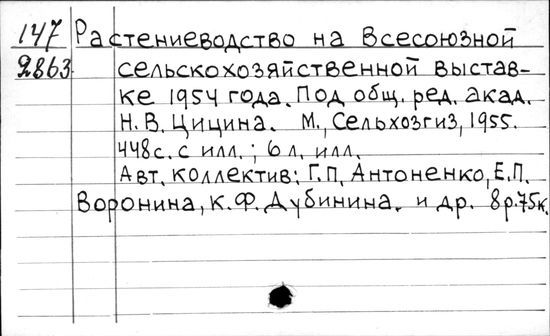 147 Растениеводство на Всесоюзной
2863 сельскохозяйственной выстав-
ке 1954 года. Под общ. ред. акад.
Н. В. Цицина. М., Сельхозгиз, 1955.
448с. с илл.; 6 л. илл.
Авт. коллектив: Г.П. Антоненко, Е.П.
Воронина, К.Ф. Дубинина. и др. 8р.75к.